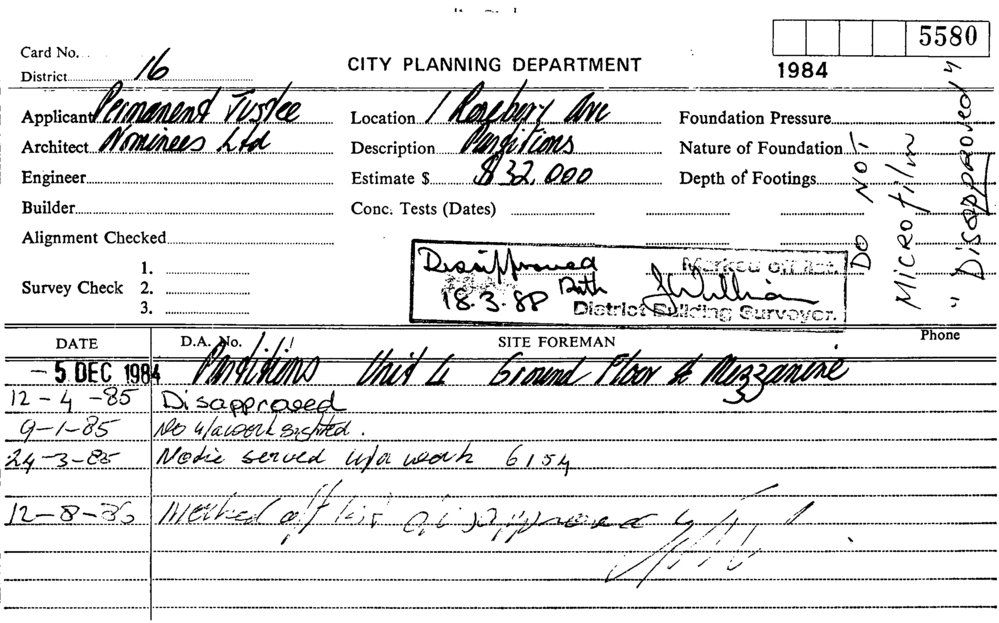 5580
Card No.
District 16
CITY PLANNING DEPARTMENT
1984
Applicant Permanent Trustee
Location 1 Rosebery Ave
Foundation Pressure
Architect Nominees Ltd
Description Partitions
Nature of Foundation
Engineer
Estimate $ $32,000
Depth of Footings
Builder
Conc. Tests (Dates)
Alignment Checked
DO NOT
MICROfilm
"Disapproved"
Survey Check
1.
2.
3.
Disapproved
Marked off list.
18.3.88
District Building Surveyor.
DATE
D.A. No.
SITE FOREMAN
Phone
- 5 DEC 1984 Partitions Unit 4 Ground Floor & Mezzanine
12-4-85 Disapproved
9-1-85 No u/a work sighted.
24-3-85 Notie served u/a work 6154
12-8-86 Marked off list disapproved